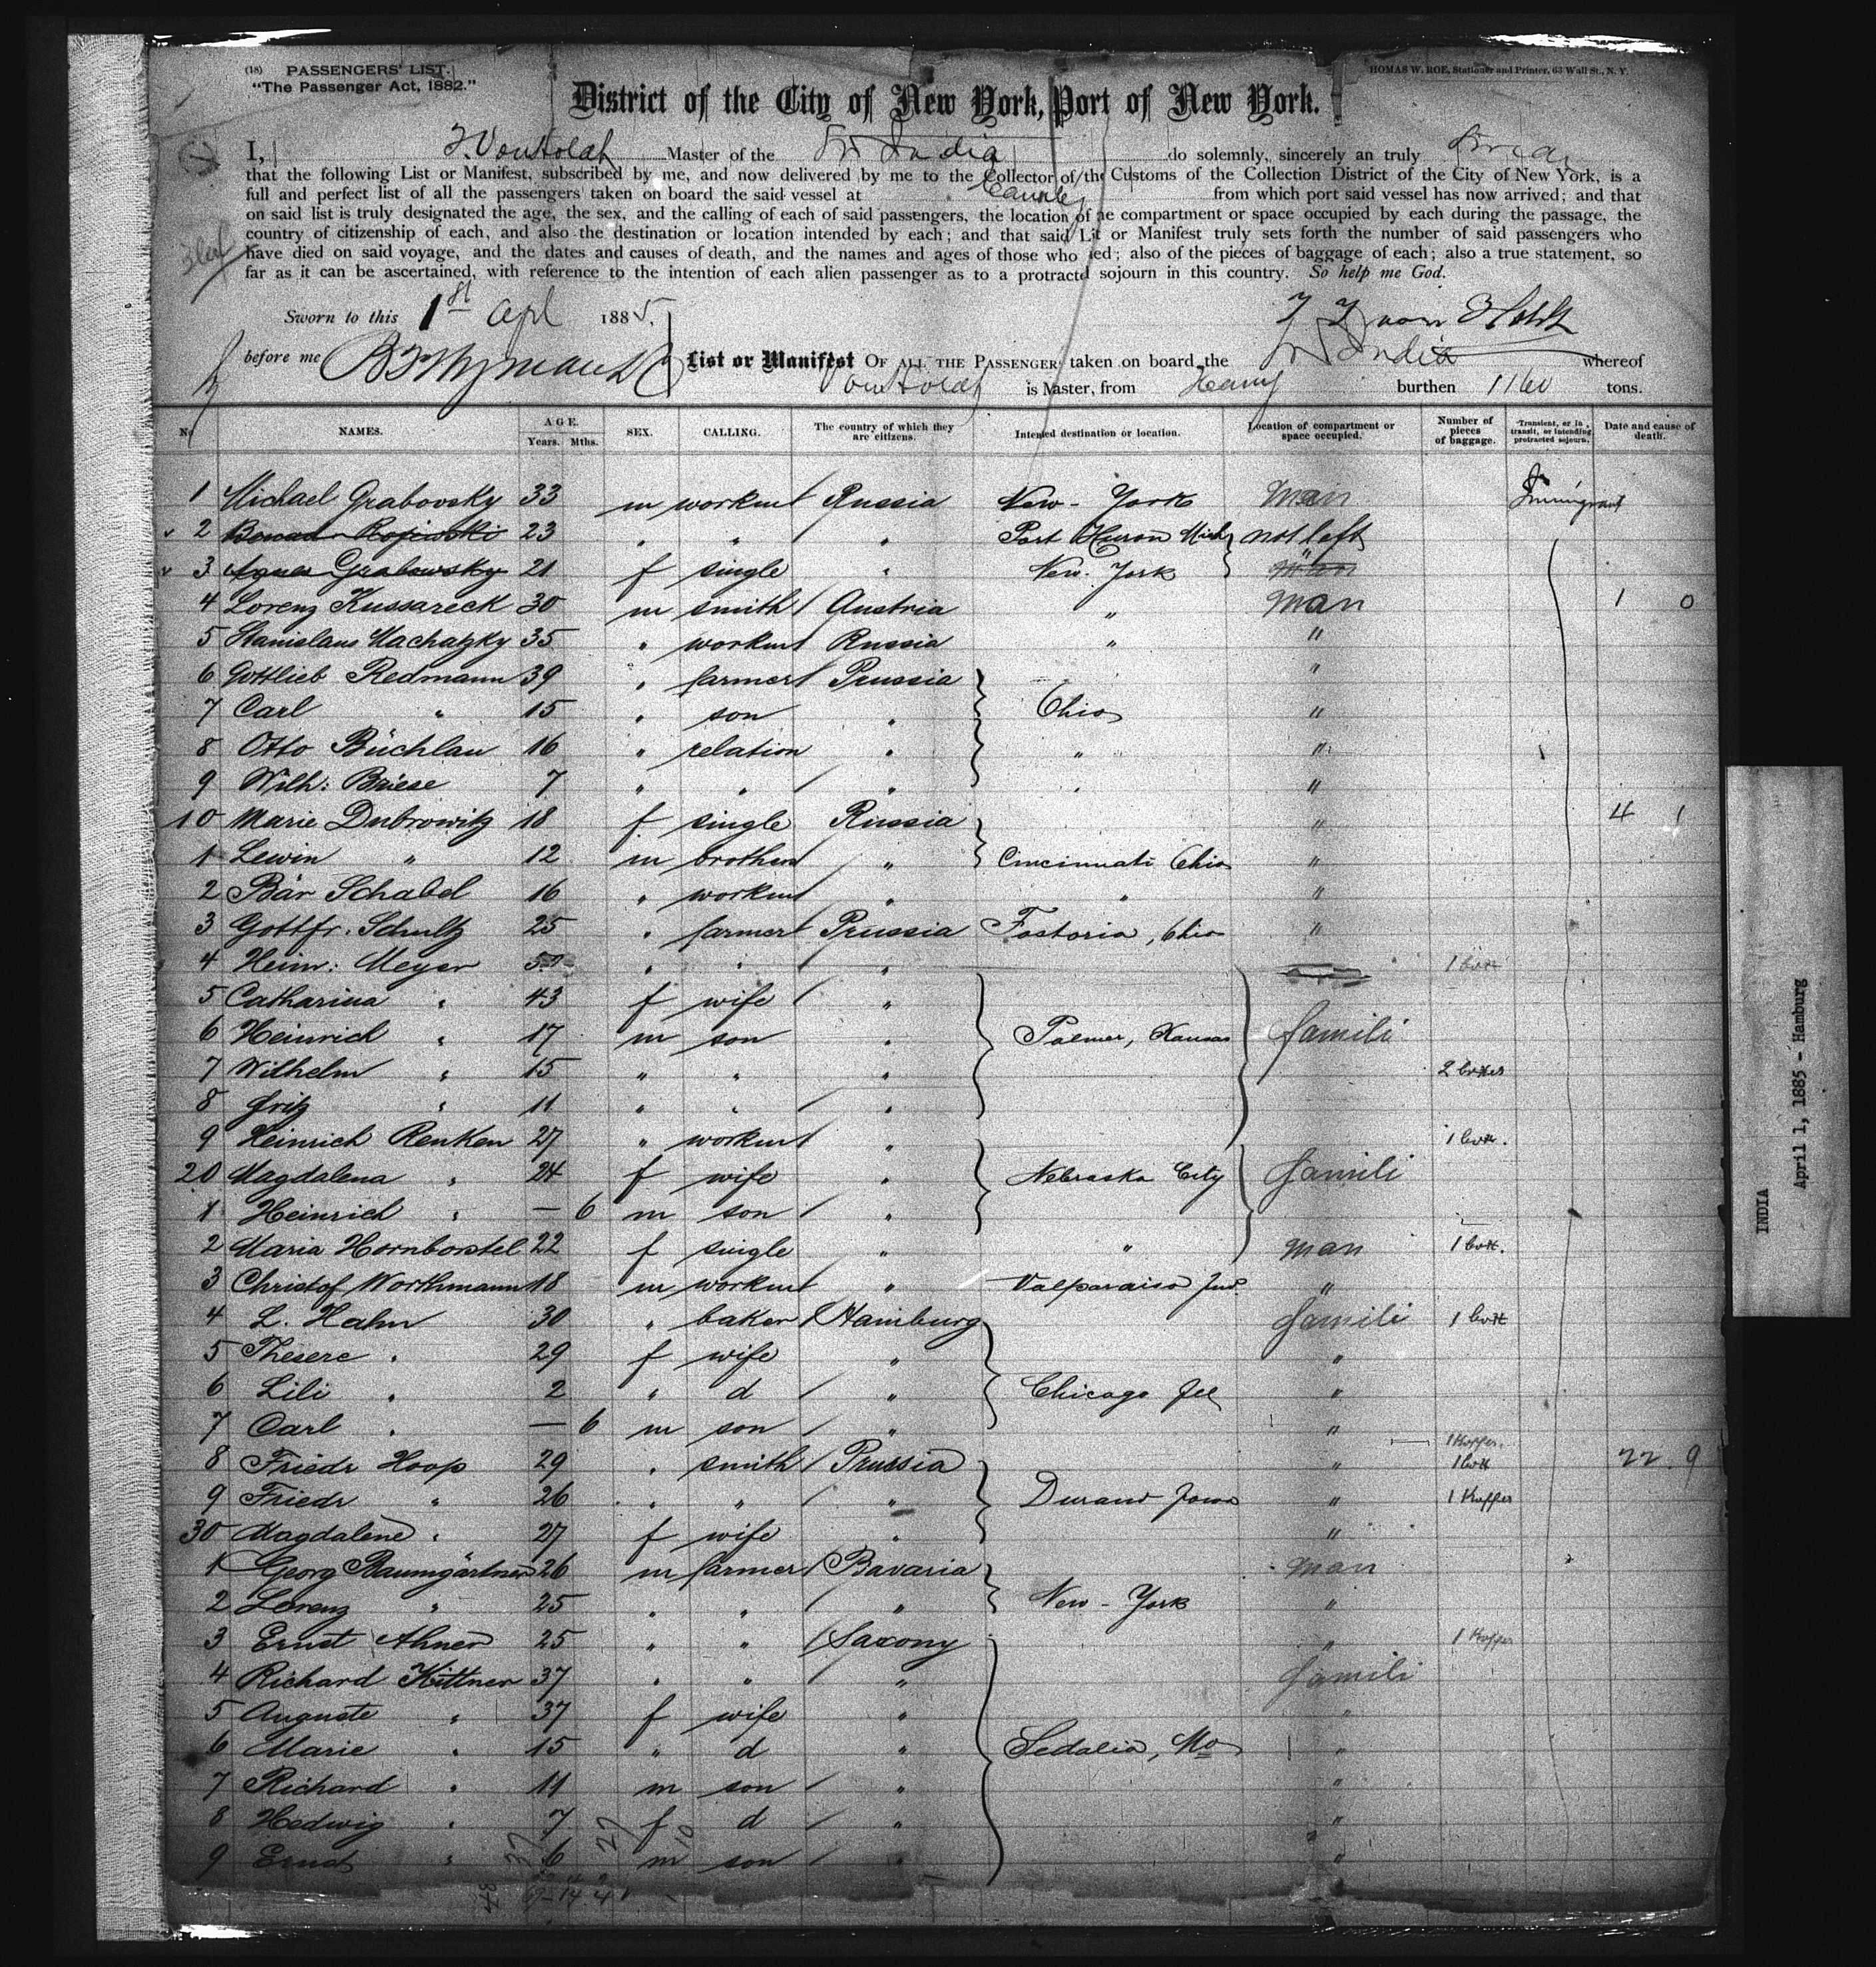 (18) PASSENGERS' LIST.
"The Passenger Act, 1882."
HOMAS W. ROE, Stationer and Printer, 63 Wall St., N. Y.
District of the City of New York, Port of New York.
I, Master of the India do solemnly, sincerely an truly
that the following List or Manifest, subscribed by me, and now delivered by me to the Collector of the Customs of the Collection District of the City of New York, is a
full and perfect list of all the passengers taken on board the said vessel at from which port said vessel has now arrived; and that
on said list is truly designated the age, the sex, and the calling of each of said passengers, the location of he compartment or space occupied by each during the passage, the
country of citizenship of each, and also the destination or location intended by each; and that said Lit or Manifest truly sets forth the number of said passengers who
have died on said voyage, and the dates and causes of death, and the names and ages of those who ied; also of the pieces of baggage of each; also a true statement, so
far as it can be ascertained, with reference to the intention of each alien passenger as to a protracted sojourn in this country. So help me God.
Sworn to this 1st Apl 1885.
before me List or Manifest OF ALL THE PASSENGERS taken on board the India whereof
is Master, from burthen 1160 tons.
No NAMES. AGE. Years. Mths. SEX. CALLING. The country of which they are citizens. Intended destination or location. Location of compartment or space occupied. Number of pieces of baggage. Transient, or in transit, or intending protracted sojourn. Date and cause of death.
1 Michael Grabovsky 33 m workmt Russia New-York man Immigrant
2 23 " " " Port Huron Mich not left
3 Agnes Grabowsky 21 f single " New-York man
4 Lorenz Kussareck 30 m smith Austria " man 1 0
5 Stanislaus Machatzky 35 " workmt Russia " "
6 Gottlieb Redmann 39 " farmer Prussia "
7 Carl " 15 " son " Ohio "
8 Otto Büchlau 16 " relation " " "
9 Wilh: Briese 7 " " " " "
10 Marie Dubrowitz 18 f single Russia " 4 1
1 Lewin " 12 m brother " Cincinnati Ohio "
2 Bär Schabel 16 " workmt " " "
3 Gottfr. Schultz 25 " farmer Prussia Fostoria, Ohio "
4 Heinr: Meyer " " " 1 box
5 Catharina " 43 f wife "
6 Heinrich " 17 m son " Palmer, Kansas famili
7 Wilhelm " 15 " " " 2 boxes
8 Fritz " 11 " " "
9 Heinrich Renken 27 " workmt " 1 box.
20 Magdalena " 24 f wife " Nebraska City famili
1 Heinrich " — 6 m son "
2 Maria Hornborstel 22 f single " " man 1 box.
3 Christof Worthmann 18 m workmt " Valparaiso Ind. "
4 L. Hahn 30 " baker Hamburg famili 1 box
5 Therese " 29 f wife " "
6 Lili " 2 " d " Chicago Ill "
7 Carl " — 6 m son " "
1 Koffer.
8 Friedr Hoop 29 " smith Prussia " 1 box 22. 9
9 Friedr " 26 " " " Durand Iowa " 1 Koffer
30 Magdalene " 27 f wife " "
1 Georg Baumgärtner 26 m farmer Bavaria man
2 Lorenz " 25 " " " New-York "
3 Ernst Ahner 25 " " Saxony " 1 Koffer
4 Richard Kittner 37 " " " famili
5 Auguste " 37 f wife " "
6 Marie " 15 " d " Sedalia, Mo "
7 Richard " 11 m son " "
8 Hedwig " 7 f d " "
9 Ernst " 6 m son " "
INDIA
April 1, 1885 - Hamburg